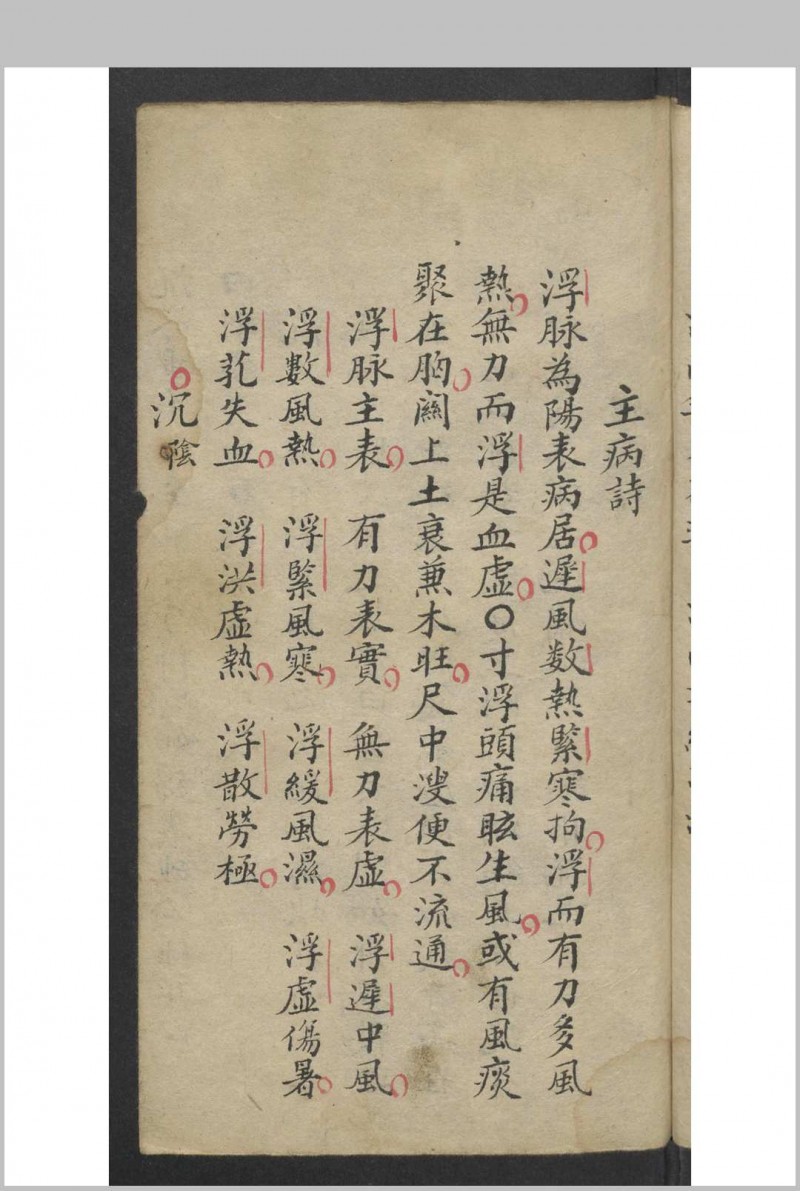 主病詩
浮脉為陽表病居遲風数熱緊寒拘浮而有力多風
熱無力而浮是血虛〇寸浮頭痛眩生風或有風痰
聚在胸關上土衰兼木旺尺中溲便不流通
浮脉主表 有力表實 無力表虛 浮遲中風
浮數風熱 浮緊風寒 浮緩風濕 浮虛傷暑
浮芤失血 浮洪虛熱 浮散勞極
沉陰